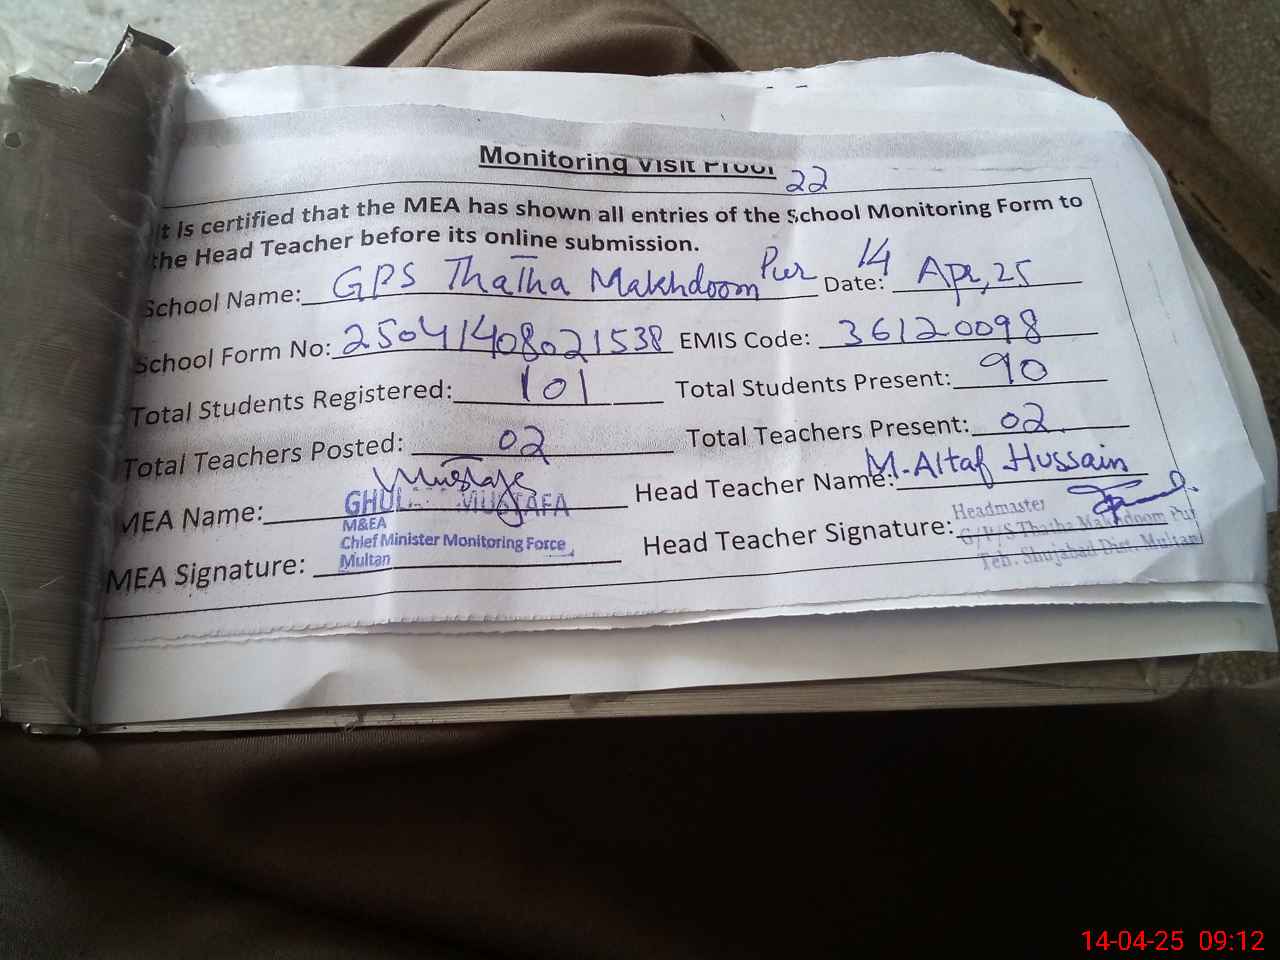 Monitoring Visit Proof
22
It is certified that the MEA has shown all entries of the School Monitoring Form to
the Head Teacher before its online submission.
School Name: GPS Thatha Makhdoom Pur Date: 14 Apr, 25
School Form No: 25041408021538 EMIS Code: 36120098
Total Students Registered: 101 Total Students Present: 90
Total Teachers Posted: 02 Total Teachers Present: 02
MEA Name: Mustafa GHULAM MUSTAFA Head Teacher Name: M. Altaf Hussain
M&EA
Chief Minister Monitoring Force
Multan
MEA Signature: Head Teacher Signature:
Headmaster
G/P/S Thatha Makhdoom Pur
Teh. Shujabad Dist. Multan
14-04-25 09:12